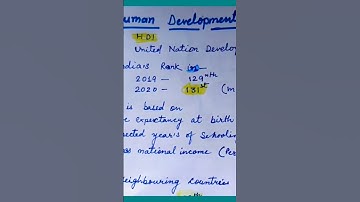 Human Development
HDI
United Nation Develop
India's Rank in
2019 — 129th
2020 — 131st (m
is based on
e expectancy at birth
ected years of Schoolin
ss national income (Per
eighbouring Countries